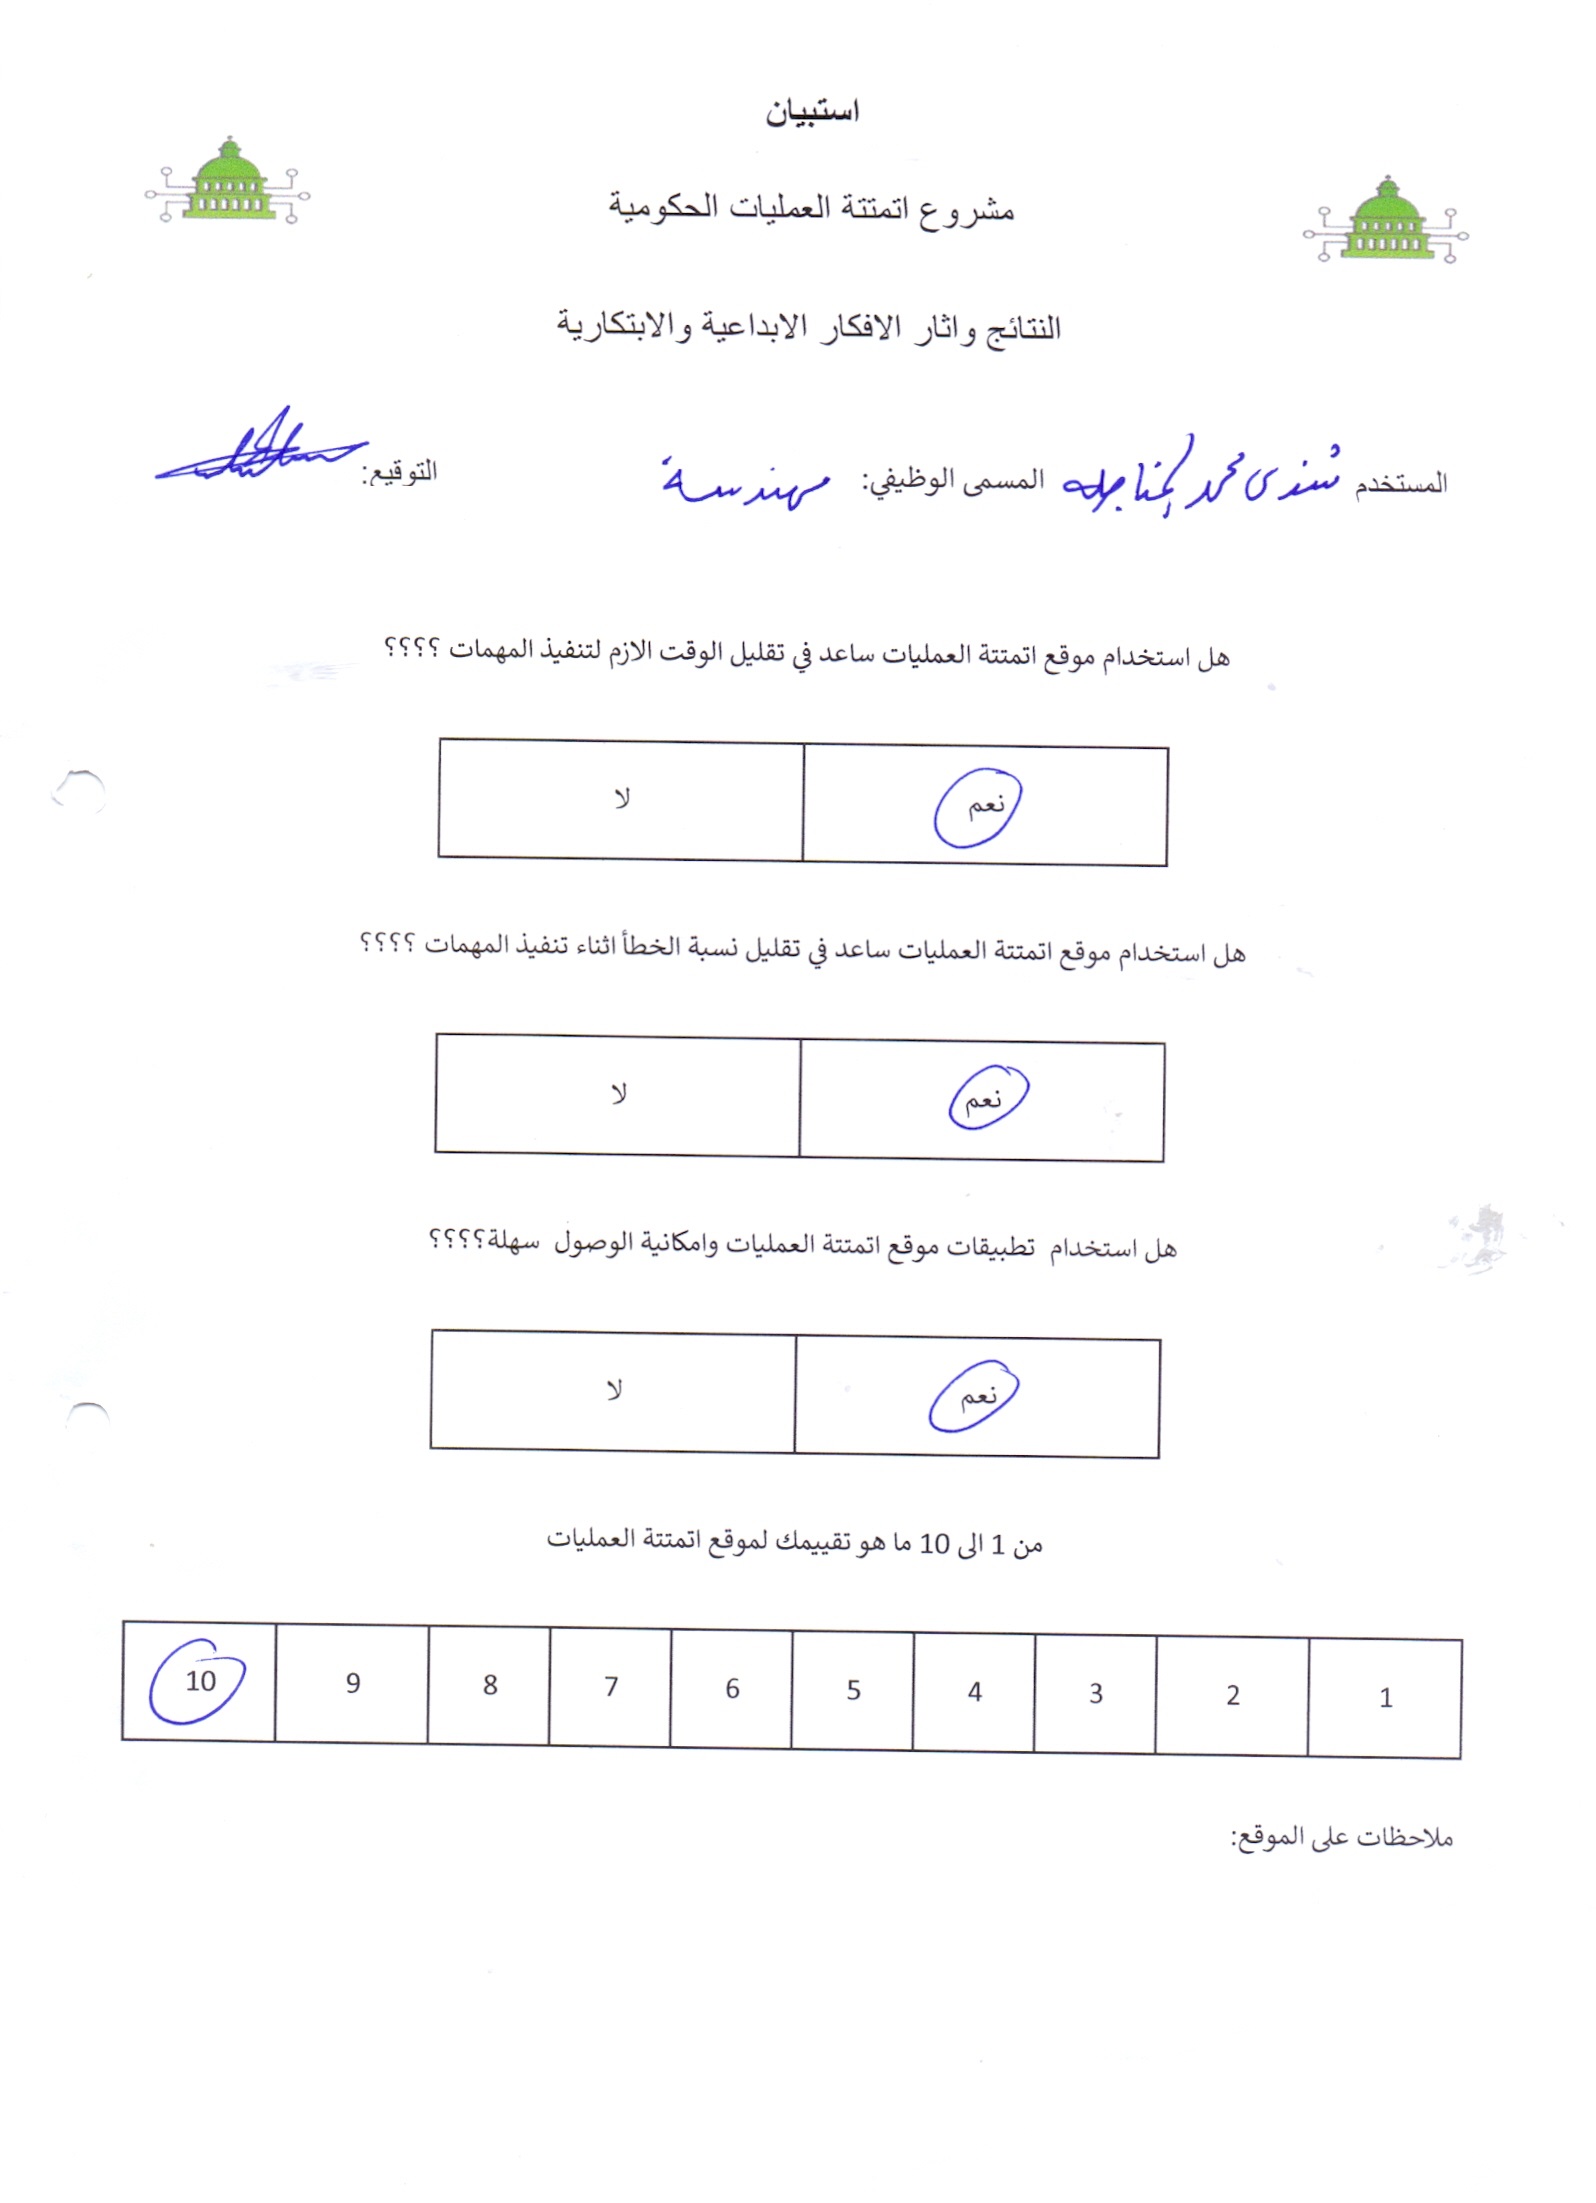 استبيان
مشروع اتمتتة العمليات الحكومية
النتائج واثار الافكار الابداعية والابتكارية
المستخدم شذى محمد المسمى الوظيفي: مهندسة التوقيع:
هل استخدام موقع اتمتتة العمليات ساعد في تقليل الوقت الازم لتنفيذ المهمات ؟؟؟؟
نعم لا
هل استخدام موقع اتمتتة العمليات ساعد في تقليل نسبة الخطأ اثناء تنفيذ المهمات ؟؟؟؟
نعم لا
هل استخدام تطبيقات موقع اتمتتة العمليات وامكانية الوصول سهلة؟؟؟؟
نعم لا
من 1 الى 10 ما هو تقييمك لموقع اتمتتة العمليات
1 2 3 4 5 6 7 8 9 10
ملاحظات على الموقع: